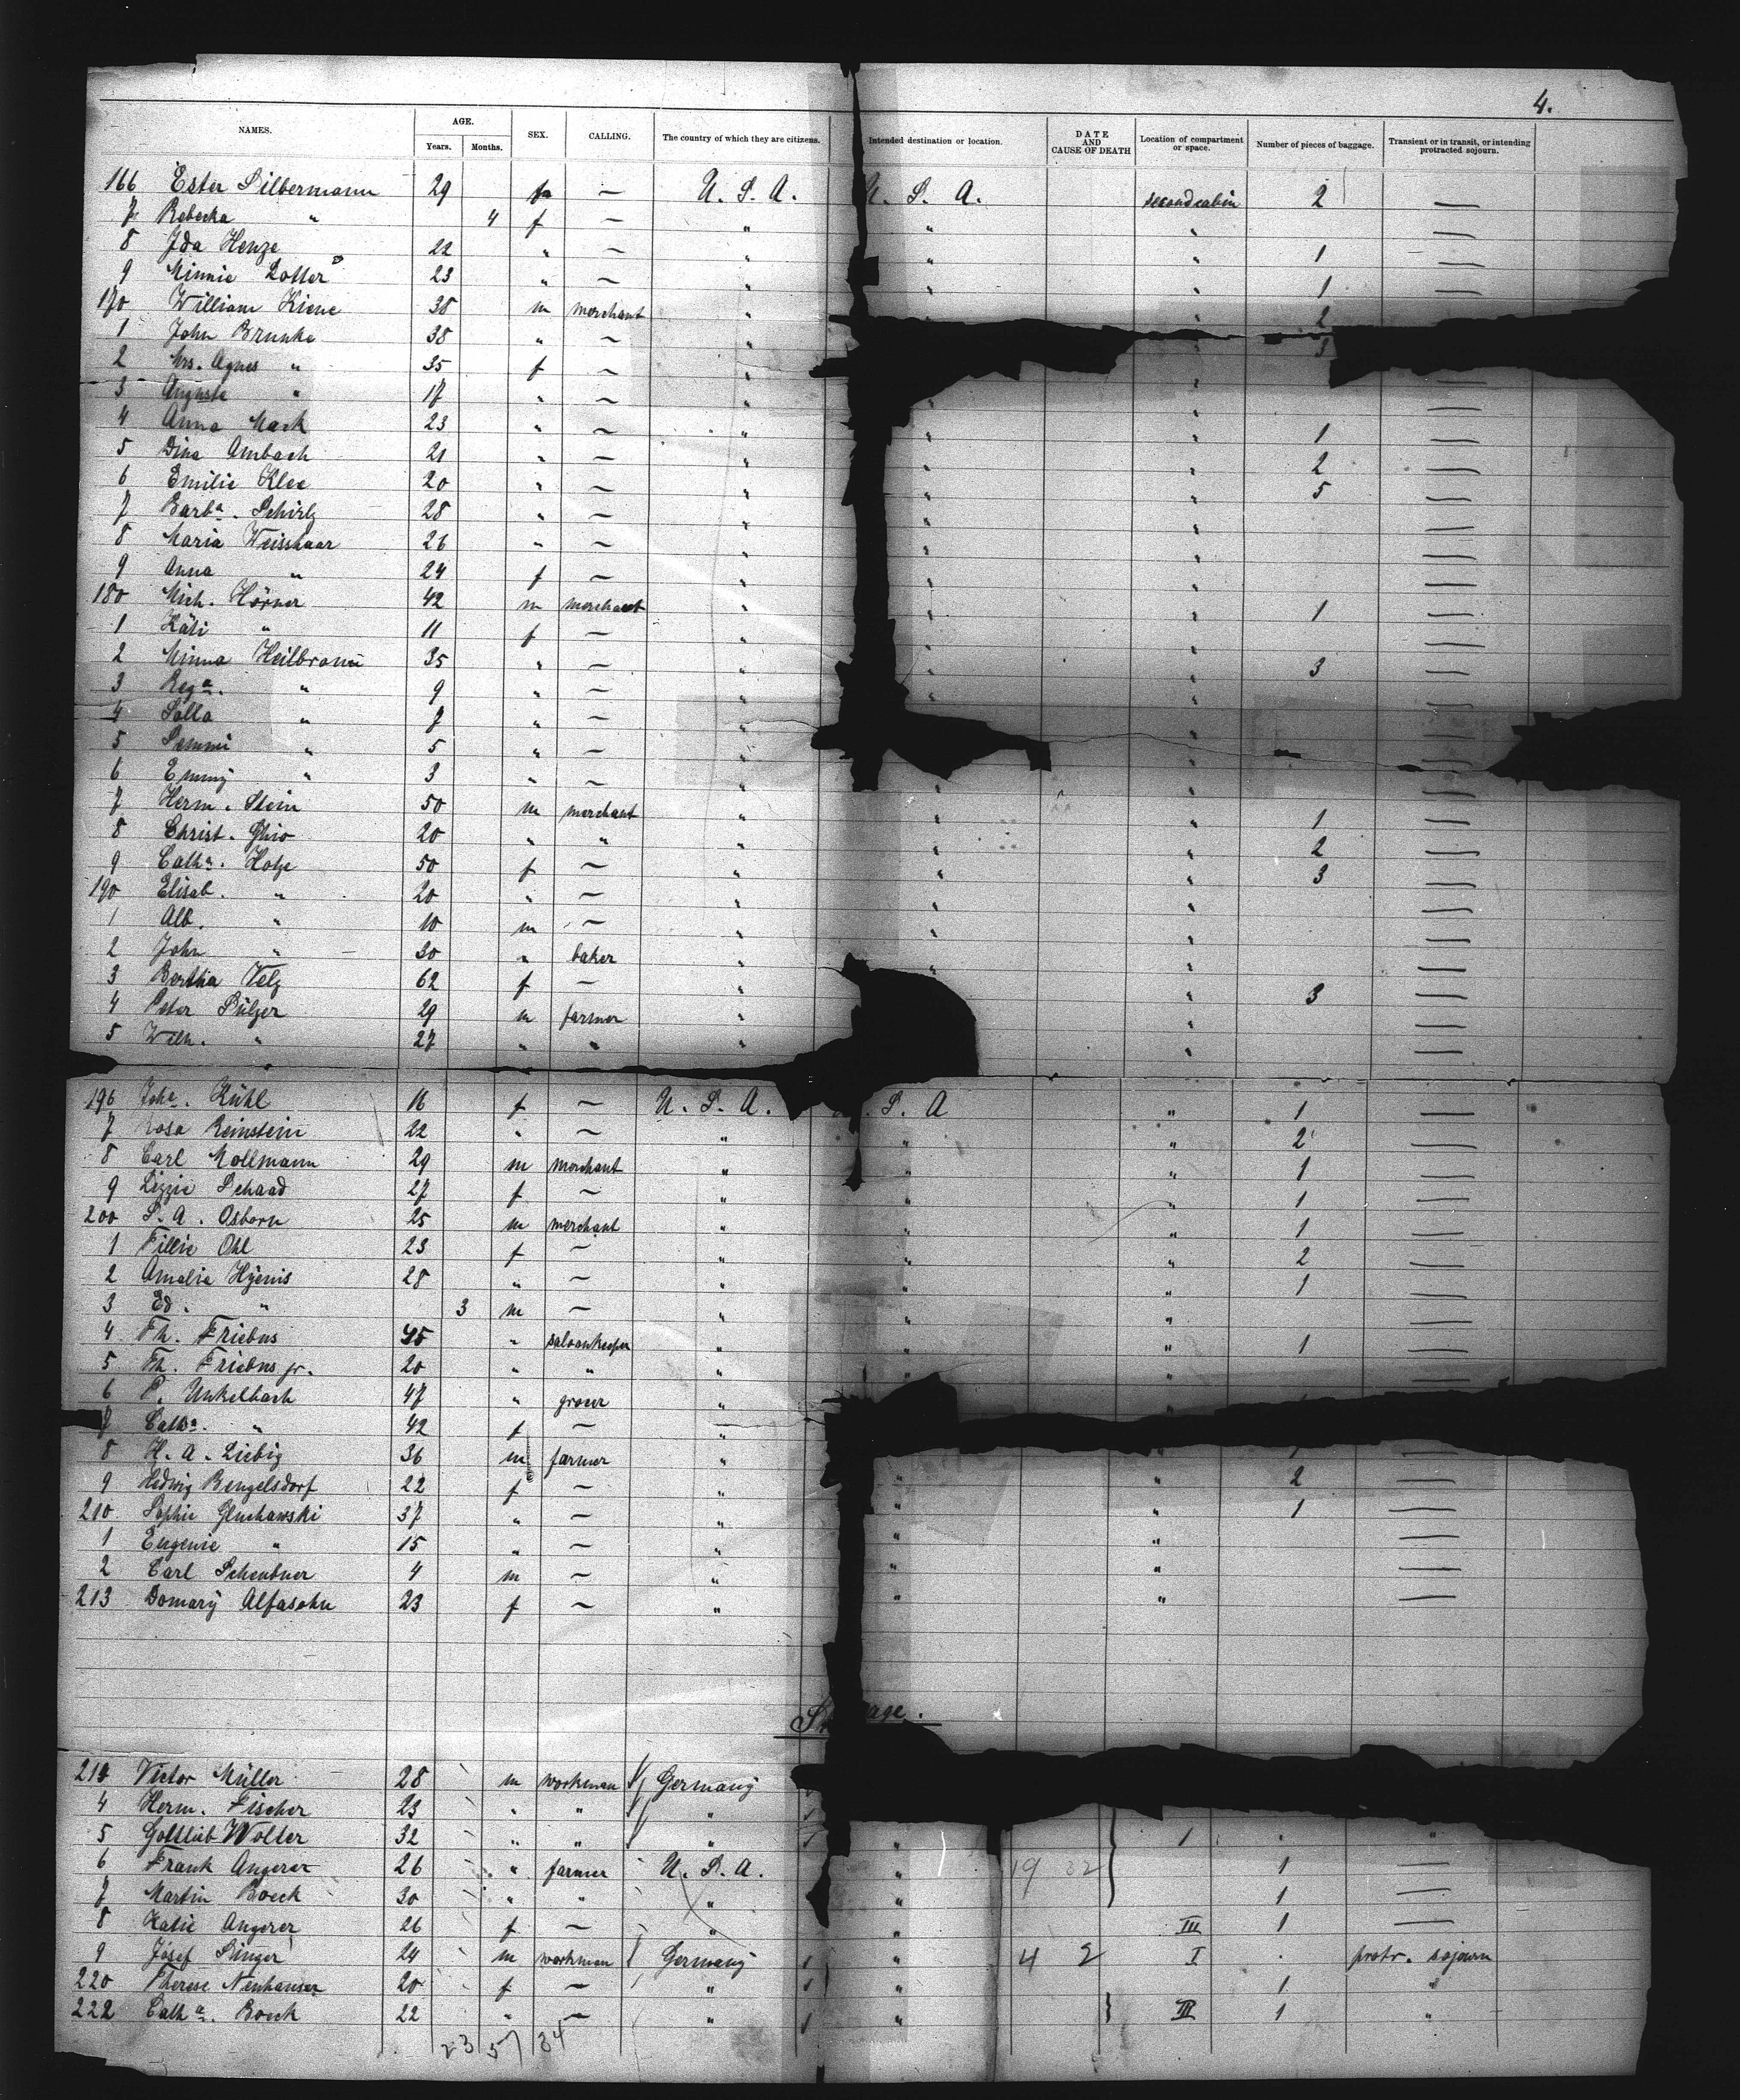 4.
NAMES. AGE. Years. Months. SEX. CALLING. The country of which they are citizens. Intended destination or location. DATE AND CAUSE OF DEATH Location of compartment or space. Number of pieces of baggage. Transient or in transit, or intending protracted sojourn.
166 Ester Silbermann 29 f — U. S. A. U. S. A. second cabin 2 —
7 Rebecka " 4 f — " " " —
8 Ida Henze 22 " — " " " 1 —
9 Minnie Lotter 23 " — " " " 1 —
170 William Kiene 38 m merchant " " 2
1 John Brunke 38 " — " 3
2 Mrs. Agnes " 35 f — " "
3 Augusta " 17 " — " " " —
4 Anna Mack 23 " — " " " 1 —
5 Dina Ambach 21 " — " " " 2 —
6 Emilie Klee 20 " — " " " 5 —
7 Barba. Schirlz 28 " — " " " —
8 Maria Weisshaar 26 " — " " " —
9 Anna " 24 f — " " " —
180 Mich. Hörner 42 m merchant " " " 1 —
1 Käti " 11 f — " " " —
2 Minna Heilbronn 35 " — " " " 3 —
3 Rega. " 9 " — " " " —
4 Salla " 7 " — " " —
5 Semmi " 5 " — " " —
6 Emmy " 3 " — " " —
7 Herm. Stein 50 m merchant " " " 1 —
8 Christ. Ghio 20 " " " " " 2 —
9 Catha. Hotze 50 f — " " " 3 —
190 Elisab. " 20 " — " " " —
1 Alb. " 10 m — " " " —
2 John " 30 " baker " " " —
3 Bertha Velz 62 f — " " 3 —
4 Peter Sülzer 29 m farmer " " —
5 Wilh. " 27 " " " " —
196 Joha. Kühl 16 f — U. S. A. S. A " 1 —
7 Rosa Reinstein 22 " — " " " 2 —
8 Carl Mollmann 29 m merchant " " " 1 —
9 Lizzie Schaad 27 f — " " " 1 —
200 S. A. Osborn 25 m merchant " " " 1 —
1 Tillie Ohl 23 f — " " " 2 —
2 Amalia Hyenis 28 " — " " " 1 —
3 Ed. " 3 m — " " " —
4 Th. Friebus 45 " saloonkeeper " " " 1 —
5 Th. Friebus jr. 20 " " " " " —
6 P. Unkelbach 47 " grocer " "
7 Catha. " 42 f — "
8 H. A. Liebig 36 m farmer " " 1 —
9 Hedwig Bengelsdorf 22 f — " " " 2 —
210 Sophie Gluchawski 37 " — " " " 1 —
1 Eugenie " 15 " — " " " —
2 Carl Scheubner 4 m — " " " —
213 Domary Alfasohn 23 f — " " " —
age.
213 Victor Müller 28 m workman Germany
4 Herm. Fischer 23 " " "
5 Gottlieb Wolter 32 " " " " 1 . "
6 Frank Angerer 26 " farmer U. S. A. " 19 32 1 —
7 Martin Boeck 30 " " " " 1 —
8 Katie Angerer 26 f — " " III 1 —
9 Josef Singer 24 m workman Germany " 4 2 I . protr. sojourn
220 Therese Neuhauser 20 f — " " 1 "
222 Catha. Boeck 22 " — " " III 1 "
23 57 34